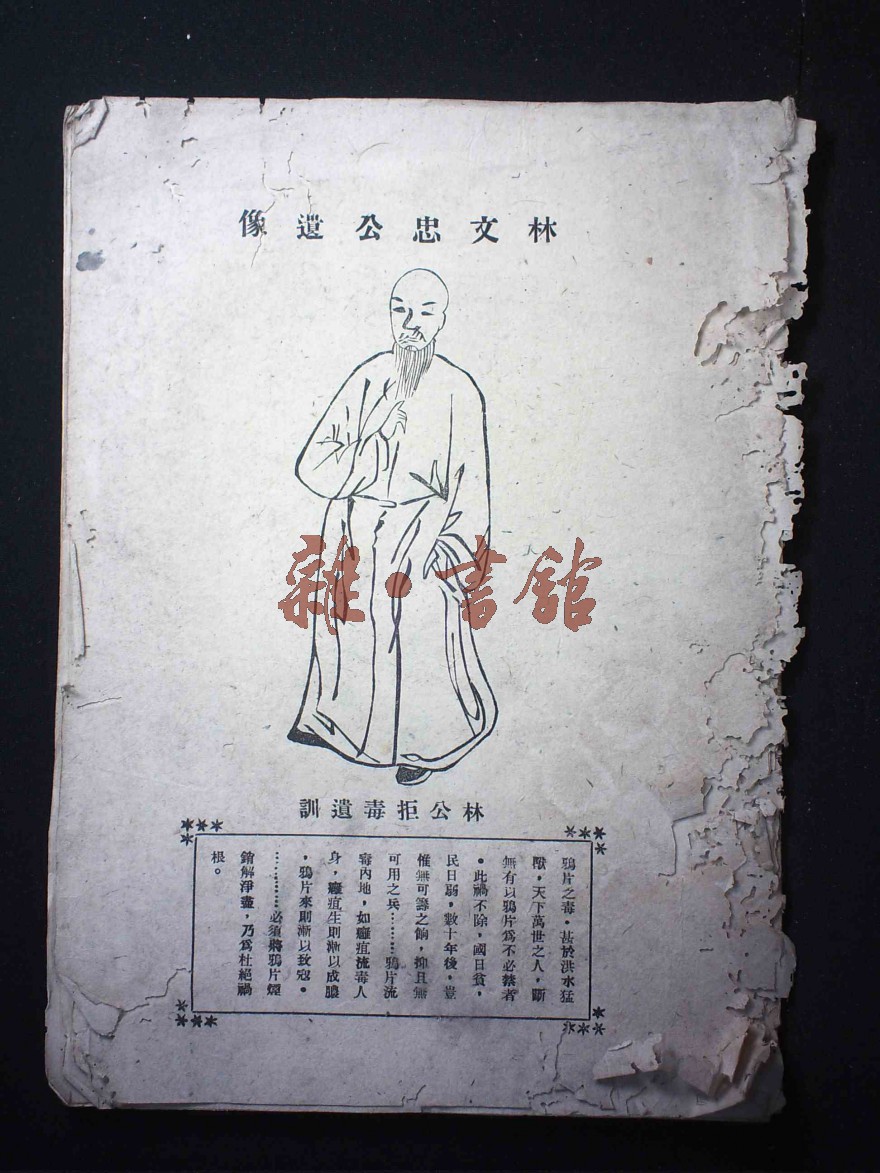 林文忠公遺像
雜·書館
林公拒毒遺訓
鴉片之毒，甚於洪水猛
獸，天下萬世之人，斷
無有以鴉片爲不必禁者
。此禍不除，國日貧，
民日弱，數十年後，豈
惟無可籌之餉，抑且無
可用之兵………鴉片流
毒內地，如癰疽流毒人
身，癰疽生則漸以成膿
，鴉片來則漸以致寇。
………必須將鴉片煙
銷解淨盡，乃爲杜絕禍
根。
一